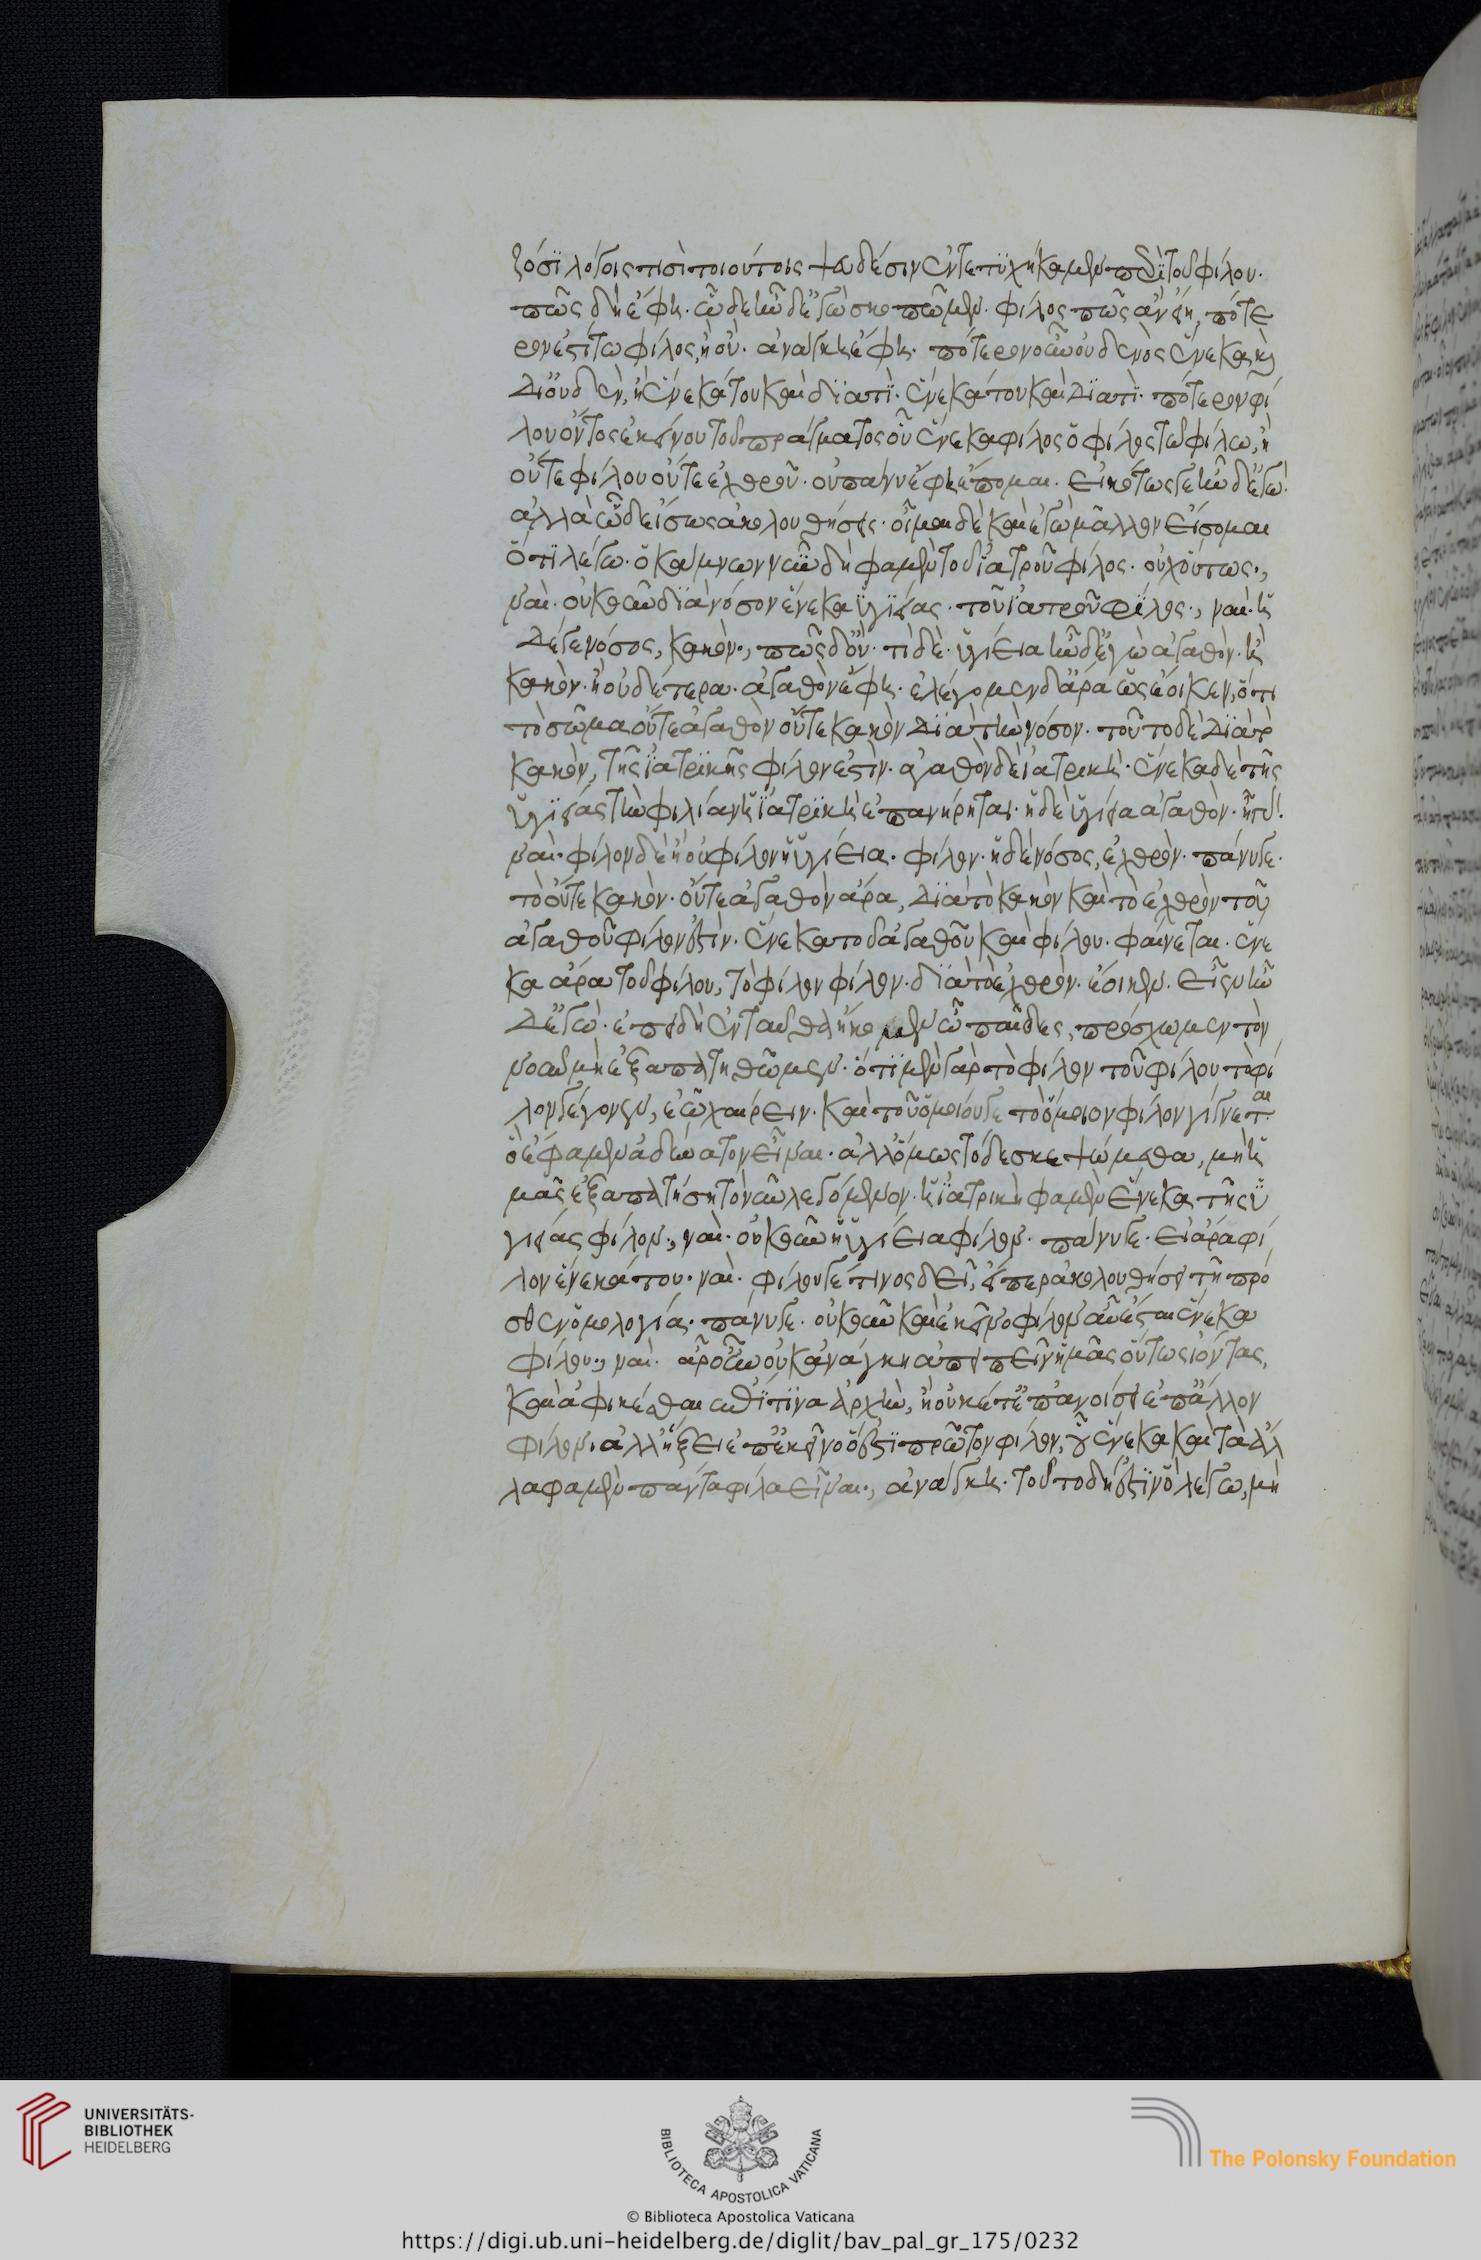 ζόσι λόγοις τισὶ τοιούτοις ψευδέσιν ἐντετυχήκαμεν περὶ τοῦ φίλου.
πῶς δὴ ἔφη. ὧδε ἦν δ' ἐγὼ σκοπῶμεν. φίλος πῶς ἂν εἴη, πότε
ρον ἐστί τω φίλος, ἢ οὔ. ἀνάγκη ἔφη. πότερον οὖν οὐδενὸς ἕνεκα καὶ
δι' οὐδὲν, ἢ ἕνεκά του καὶ διά τι. ἕνεκά του καὶ διά τι. πότερον φί
λου ὄντος ἐκείνου τοῦ πράγματος οὗ ἕνεκα φίλος ὁ φίλος τῷ φίλω, ἢ
οὔτε φίλου οὔτε ἐχθροῦ. οὐ πάνυ ἔφη ἕπομαι. εἰκότως γε ἦν δ' ἐγώ.
ἀλλὰ ὧδε ἴσως ἀκολουθήσεις. οἶμαι δὲ καὶ ἐγὼ μᾶλλον εἴσομαι
ὅτι λέγω. ὁ κάμνων νῦν δὴ φαμὲν τοῦ ἰατροῦ φίλος. οὐχ οὕτως.,
ναί. οὐκοῦν διὰ νόσον ἕνεκα ὑγιείας. τοῦ ἰατροῦ φίλος., ναί. ἡ
δέ γε νόσος, κακόν., πῶς δ' οὔ. τί δὲ. ὑγίεια ἦν δ' ἐγὼ ἀγαθὸν. ἢ
κακὸν. ἢ οὐδέτερα. ἀγαθὸν ἔφη. ἐλέγομεν δ' ἄρα ὡς ἔοικεν, ὅτι
τὸ σῶμα οὔτε ἀγαθὸν οὔτε κακὸν διὰ τὴν νόσον. τοῦτο δὲ διὰ τὸ
κακόν, τῆς ἰατρικῆς φίλον ἐστὶν. ἀγαθὸν δὲ ἰατρική. ἕνεκα δὲ τῆς
ὑγιείας τὴν φιλίαν ἡ ἰατρικὴ ἐπανήρηται. ἡ δὲ ὑγίεια ἀγαθὸν. ἦ γάρ.
ναί. φίλον δὲ ἢ οὐ φίλον ἡ ὑγίεια. φίλον. ἡ δὲ νόσος, ἐχθρόν. πάνυ γε.
τὸ οὔτε κακὸν. οὔτε ἀγαθὸν ἄρα, διὰ τὸ κακὸν καὶ τὸ ἐχθρὸν τοῦ
ἀγαθοῦ φίλον ἐστὶν. ἕνεκα τοῦ ἀγαθοῦ καὶ φίλου. φαίνεται. ἕνε
κα ἄρα τοῦ φίλου, τὸ φίλον φίλον. διὰ τὸ ἐχθρὸν. ἔοικεν. εἶεν ἦν
δ' ἐγώ. ἐπειδὴ ἐνταῦθα ἥκομεν ὦ παῖδες, πρόσχωμεν τὸν
νοῦν μὴ ἐξαπατηθῶμεν. ὅτι μὲν γὰρ τὸ φίλον τοῦ φίλου τὸ φί
λον γέγονεν, ἐῶ χαίρειν. καὶ τοῦ ὁμοίου γε τὸ ὅμοιον φίλον γίγνεται
ὃ ἔφαμεν ἀδύνατον εἶναι. ἀλλ' ὅμως τόδε σκεψώμεθα, μὴ ἡ
μᾶς ἐξαπατήσῃ τὸ νῦν λεγόμενον. ἡ ἰατρικὴ φαμὲν ἕνεκα τῆς ὑ
γιείας φίλον., ναί. οὐκοῦν ἡ ὑγίεια φίλον. πάνυ γε. εἰ ἄρα φί
λον ἕνεκά του. ναί. φίλου γέ τινος δεῖ, εἴπερ ἀκολουθήσει τῆ πρό
σθεν ὁμολογία. πάνυ γε. οὐκοῦν καὶ ἐκεῖνο φίλον αὖ ἔσται ἕνεκα
φίλου., ναί. ἆρ' οὖν οὐκ ἀνάγκη ἀπειπεῖν ἡμᾶς οὕτως ἰόντας,
καὶ ἀφικέσθαι ἐπί τινα ἀρχήν, ἢ οὐκέτ' ἐπανοίσει ἐπ' ἄλλον
φίλον, ἀλλ' ἥξει ἐπ' ἐκεῖνο ὅ ἐστι πρῶτον φίλον, οὗ ἕνεκα καὶ τὰ ἄλ
λα φαμὲν πάντα φίλα εἶναι., ἀνάγκη. τοῦτο δή ἐστιν ὃ λέγω, μὴ
UNIVERSITÄTS-
BIBLIOTHEK
HEIDELBERG
BIBLIOTECA APOSTOLICA VATICANA
The Polonsky Foundation
© Biblioteca Apostolica Vaticana
https://digi.ub.uni-heidelberg.de/diglit/bav_pal_gr_175/0232